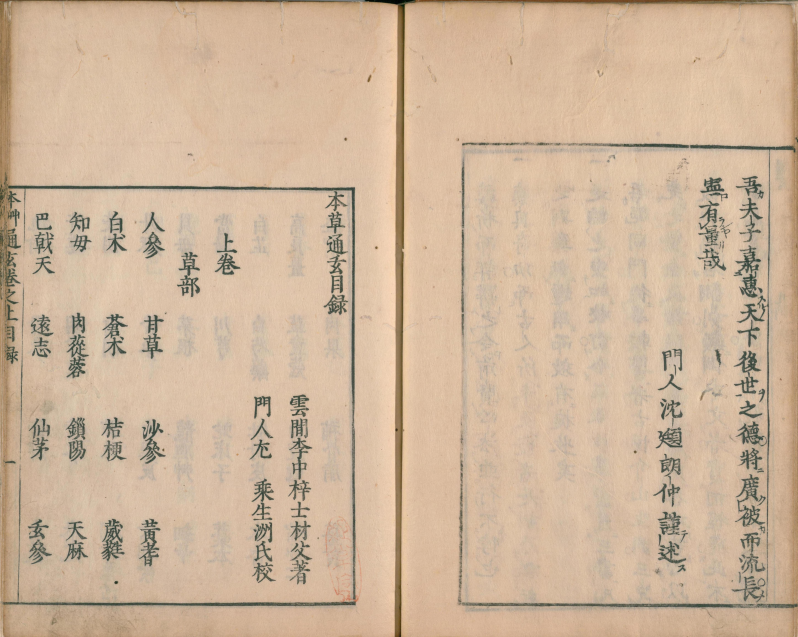 吾夫子嘉惠天下後世之德將廣被而流長
與有量哉
門人沈頲朗仲謹述
本草通玄目録
雲間李中梓士材父著
門人尤乘生洲氏校
上卷
草部
人參 甘草 沙參 黃耆
白朮 蒼朮 桔梗 葳蕤
知毋 肉蓯蓉 鎖陽 天麻
巴戟天 遠志 仙茅 玄參
本艸通玄卷之上目録 一